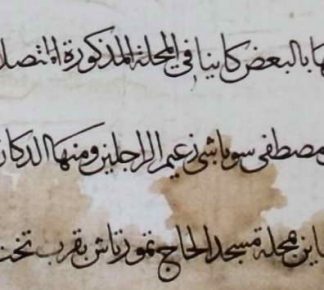 بالبعض كاينا في المحلة المذكورة المتصلة
مصطفى سوباشي زعيم الراجلين ومنها الدكان
محلة مسجد الحاج تمورتاش بقرب تخت